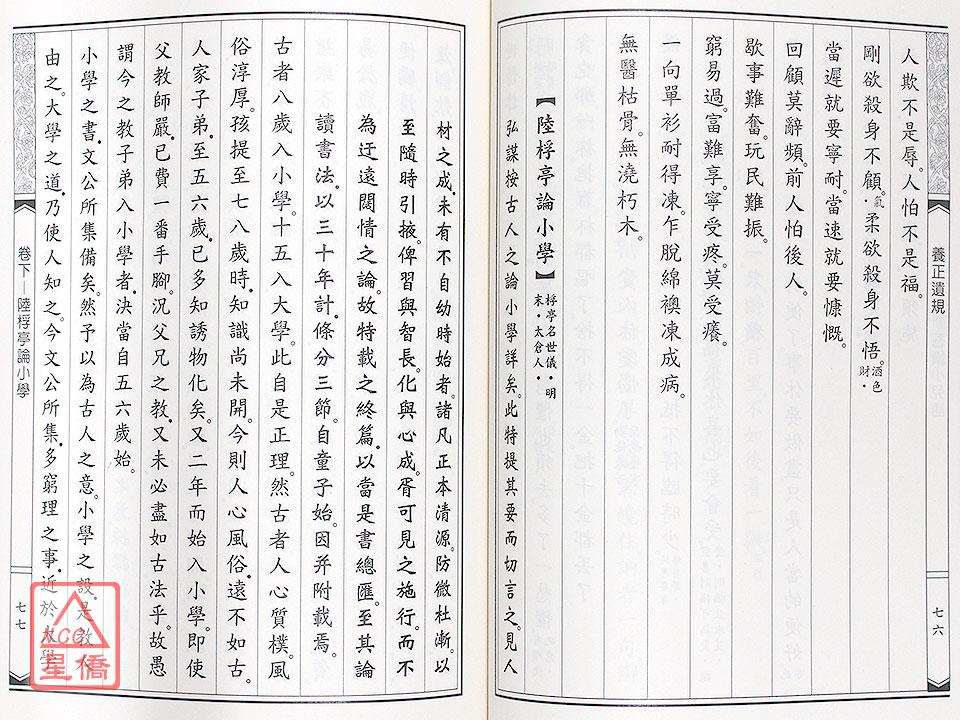 養正遺規
七六
人欺不是辱。人怕不是福。
剛欲殺身不顧。氣・柔欲殺身不悟。酒色財・
當遲就要寧耐。當速就要慷慨。
回顧莫辭頻。前人怕後人。
歇事難奮。玩民難振。
窮易過。富難享。寧受疼。莫受癢。
一向單衫耐得凍。乍脫綿襖凍成病。
無醫枯骨。無澆朽木。
【陸桴亭論小學】桴亭名世儀・明末・太倉人・
弘謀按古人之論小學詳矣。此特提其要而切言之。見人
材之成。未有不自幼時始者。諸凡正本清源。防微杜漸。以
至隨時引掖。俾習與智長。化與心成。胥可見之施行。而不
為迂遠闊情之論。故特載之終篇。以當是書總匯。至其論
讀書法。以三十年計。條分三節。自童子始。因并附載焉。
古者八歲入小學。十五入大學。此自是正理。然古者人心質樸。風
俗淳厚。孩提至七八歲時。知識尚未開。今則人心風俗。遠不如古。
人家子弟。至五六歲。已多知誘物化矣。又二年而始入小學。即使
父教師嚴。已費一番手腳。況父兄之教。又未必盡如古法乎。故愚
謂今之教子弟入小學者。決當自五六歲始。
小學之書。文公所集備矣。然予以為古人之意。小學之設。是教人
由之。大學之道。乃使人知之。今文公所集。多窮理之事。近於大學。
卷下—陸桴亭論小學
七七
ACC
星僑